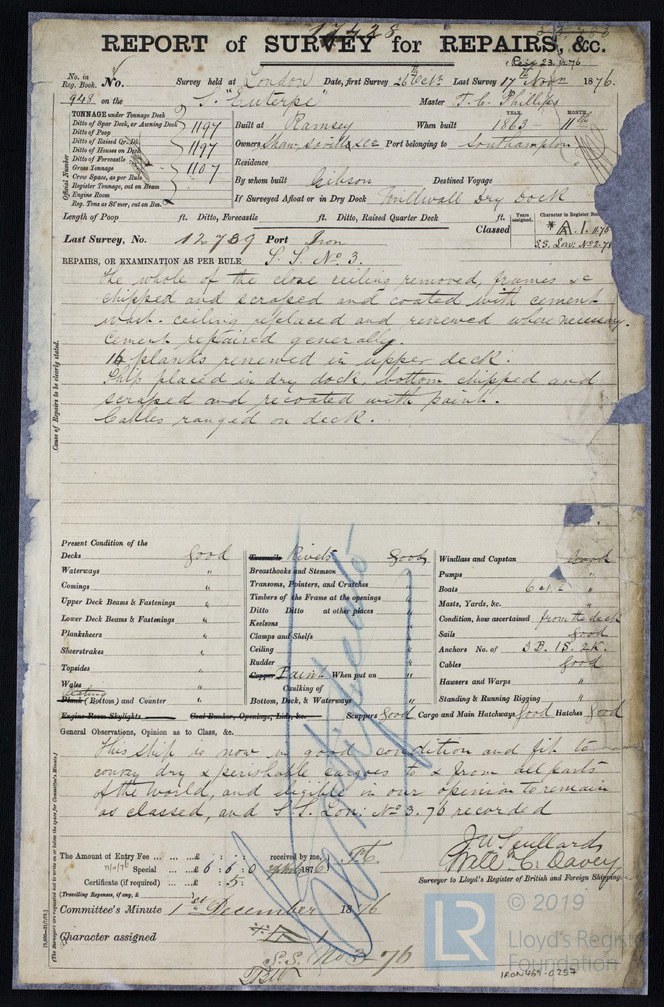 17428
REPORT of SURVEY for REPAIRS, &c.
No. in Reg. Book. No. Survey held at London Date, first Survey 26th Octr. Last Survey 17th Novr 1876.
948 on the S. "Euterpe" Master T. C. Phillips
TONNAGE under Tonnage Deck 1197
Ditto of Spar Deck, or Awning Deck
Ditto of Poop
Ditto of Raised Qr. Dk.
Ditto of Houses on Deck 1197
Ditto of Forecastle
Gross Tonnage 1107
Crew Space, as per Rule
Register Tonnage, cut on Beam
Engine Room
Reg. Tons as Str., cut on Bm.
Official Number
Built at Ramsey When built YEAR. 1863 MONTH. 11th
Owners Shaw, Savill & Co Port belonging to Southampton
Residence
By whom built Gibson Destined Voyage
If Surveyed Afloat or in Dry Dock Millwall Dry Dock
Length of Poop ft. Ditto, Forecastle ft. Ditto, Raised Quarter Deck ft.
Classed Years assigned. Character in Register Book
A.1. 11.70
S.S. Lon: No 2-71
Last Survey, No. 12739 Port Iron
REPAIRS, OR EXAMINATION AS PER RULE S. S. No. 3.
The whole of the close ceiling removed, frames &c
chipped and scraped and coated with cement
wash. ceiling replaced and renewed where necessary.
Cement repaired generally.
16 planks renewed in upper deck.
Ship placed in dry dock, bottom chipped and
scraped and recoated with paint.
Cables ranged on deck.
Cause of Repairs to be clearly stated.
Present Condition of the
Decks good
Waterways "
Comings "
Upper Deck Beams & Fastenings "
Lower Deck Beams & Fastenings "
Planksheers "
Sheerstrakes "
Topsides "
Wales "
Plating
Plank (Bottom) and Counter "
Engine Room Skylights
Treenails Rivets Good
Breasthooks and Stemson "
Transoms, Pointers, and Crutches "
Timbers of the Frame at the openings "
Ditto Ditto at other places "
Keelsons "
Clamps and Shelfs "
Ceiling "
Rudder "
Copper Paint When put on "
Caulking of
Bottom, Deck, & Waterways "
Coal Bunker, Openings, Lids, &c.
Windlass and Capstan Good
Pumps "
Boats "
Masts, Yards, &c. "
Condition, how ascertained from the deck
Sails good
Anchors No. of 3 B. 1 S. 2 K.
Cables good
Hawsers and Warps "
Standing & Running Rigging "
Scuppers Good Cargo and Main Hatchways Good Hatches Good
General Observations, Opinion as to Class, &c.
This ship is now in good condition and fit to
convey dry & perishable cargoes to & from all parts
of the world, and eligible in our opinion to remain
as classed, and S.S. Lon: No 3. 76 recorded
The Amount of Entry Fee ... £ : : received by me,
Special ... £6 : 6 : 0
Certificate (if required) ... : 5 :
(Travelling Expenses, if any, £ )
J W Scullard
Willm C. Davey
Surveyor to Lloyd's Register of British and Foreign Shipping.
Committee's Minute 1st December 1876
Character assigned
S.S. No 3-76
© 2019
LR
Lloyd's Register
Foundation
IRON469-0257